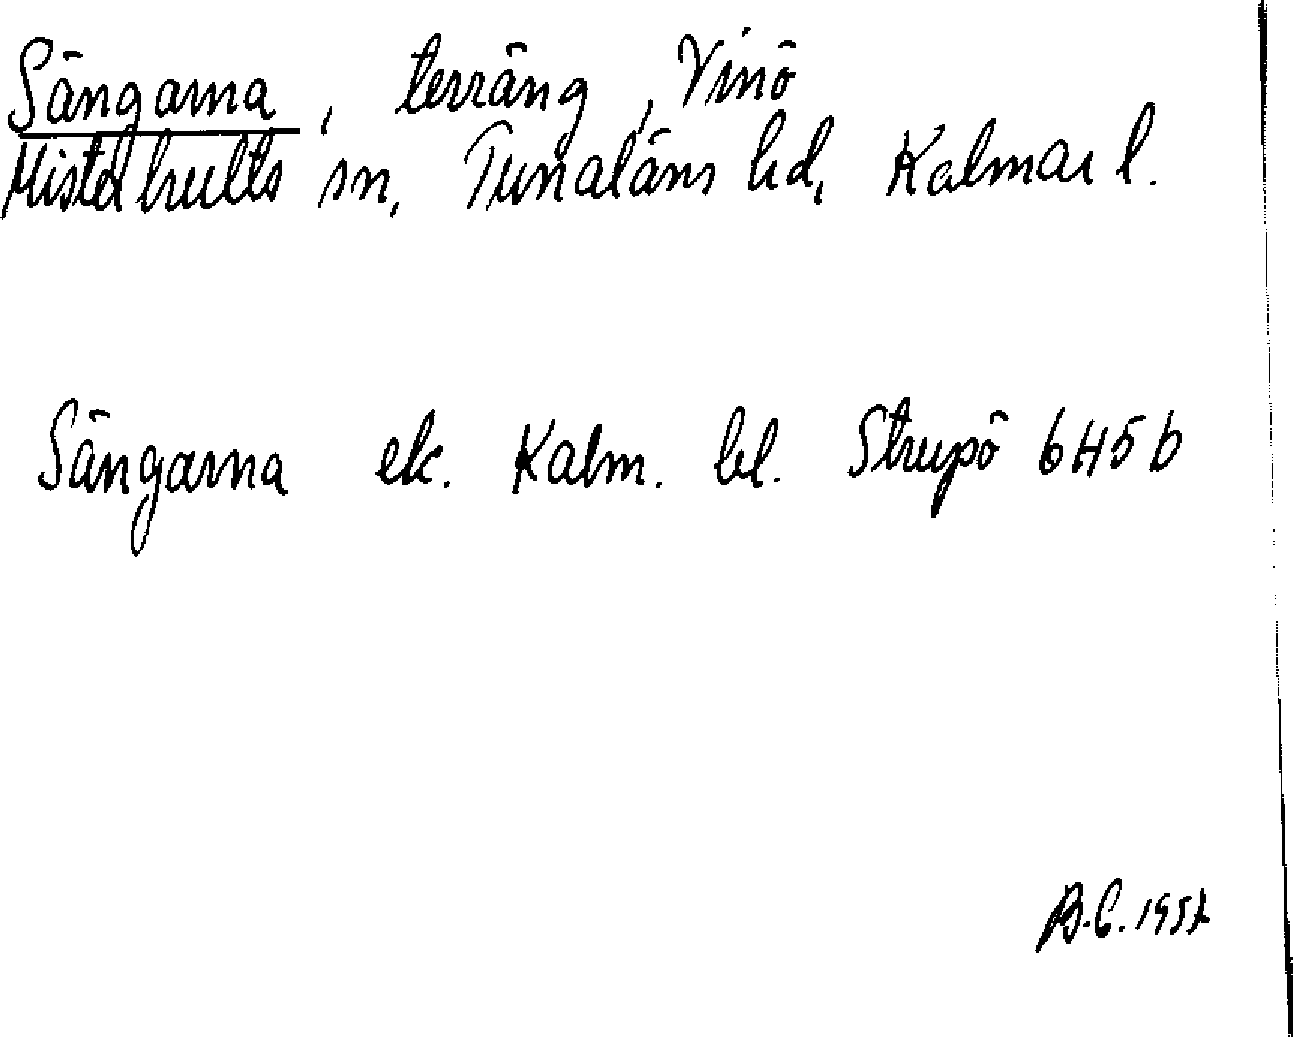 Sängarna, terräng, Vinö
Misterhults sn, Tunaläns hd, Kalmar l.
Sängarna ek. Kalm. bl. Strupö 6H5b
B.C. 195